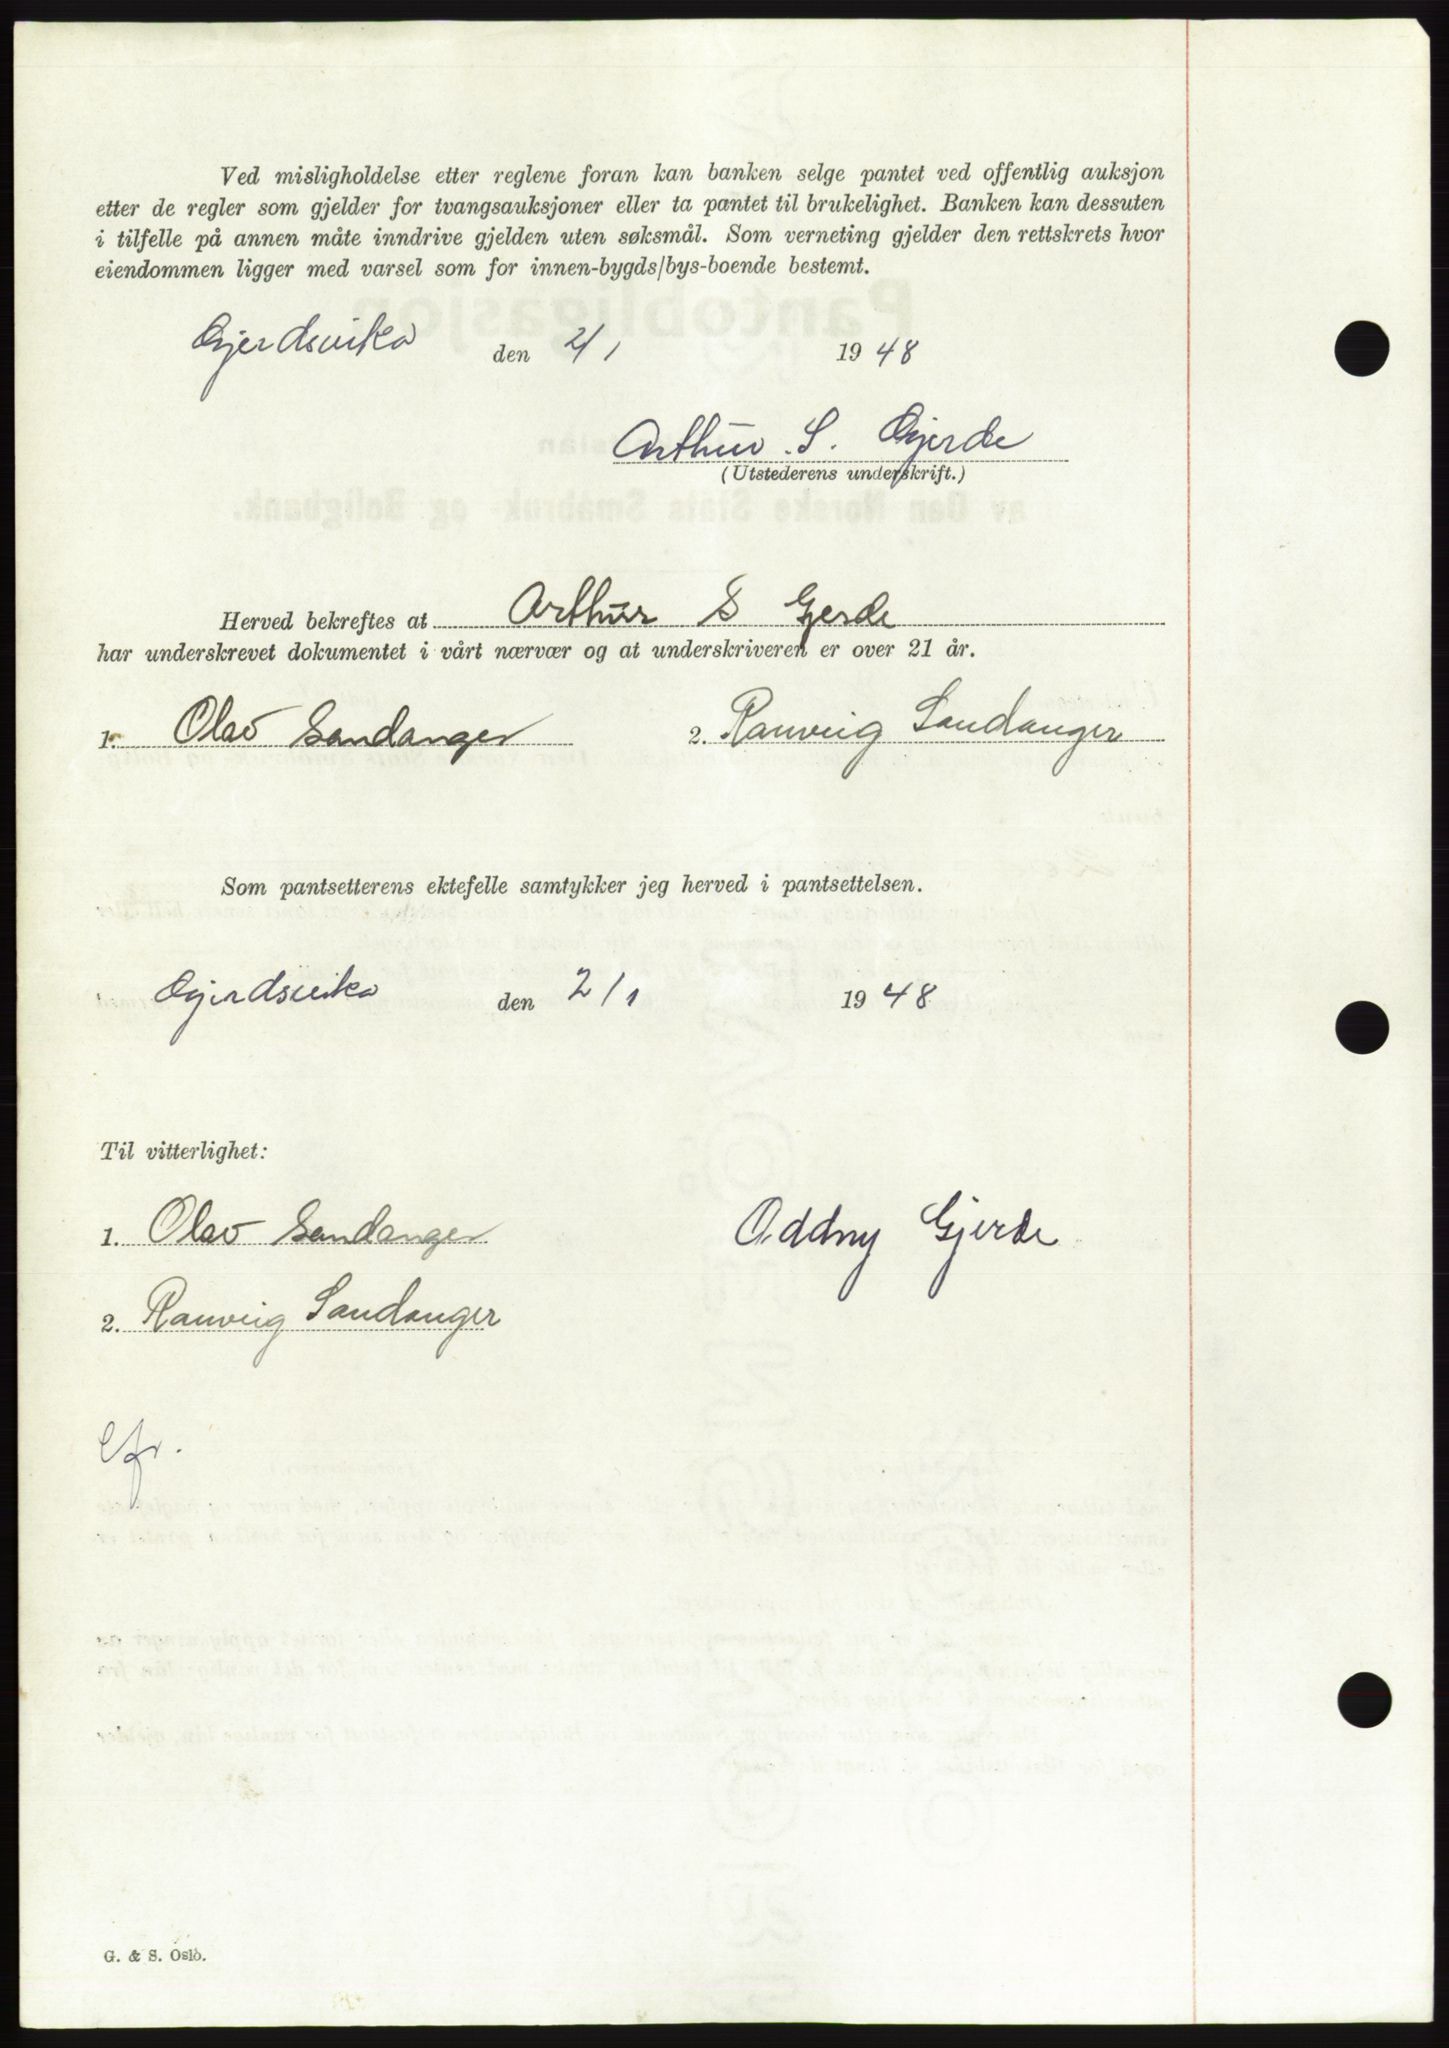 Ved misligholdelse etter reglene foran kan banken selge pantet ved offentlig auksjon
etter de regler som gjelder for tvangsauksjoner eller ta pantet til brukelighet. Banken kan dessuten
i tilfelle på annen måte inndrive gjelden uten søksmål. Som verneting gjelder den rettskrets hvor
eiendommen ligger med varsel som for innen-bygds/bys-boende bestemt.
Gjerdsvika den 2/1 1948
Arthur S. Gjerde
(Utstederens underskrift.)
Herved bekreftes at Arthur S Gjerde
har underskrevet dokumentet i vårt nærvær og at underskriveren er over 21 år.
1. Olav Sandanger 2. Ranveig Sandanger
Som pantsetterens ektefelle samtykker jeg herved i pantsettelsen.
Gjerdsvika den 2/1 1948
Til vitterlighet:
1. Olav Sandanger Oddny Gjerde
2. Ranveig Sandanger
G. & S. Oslo.